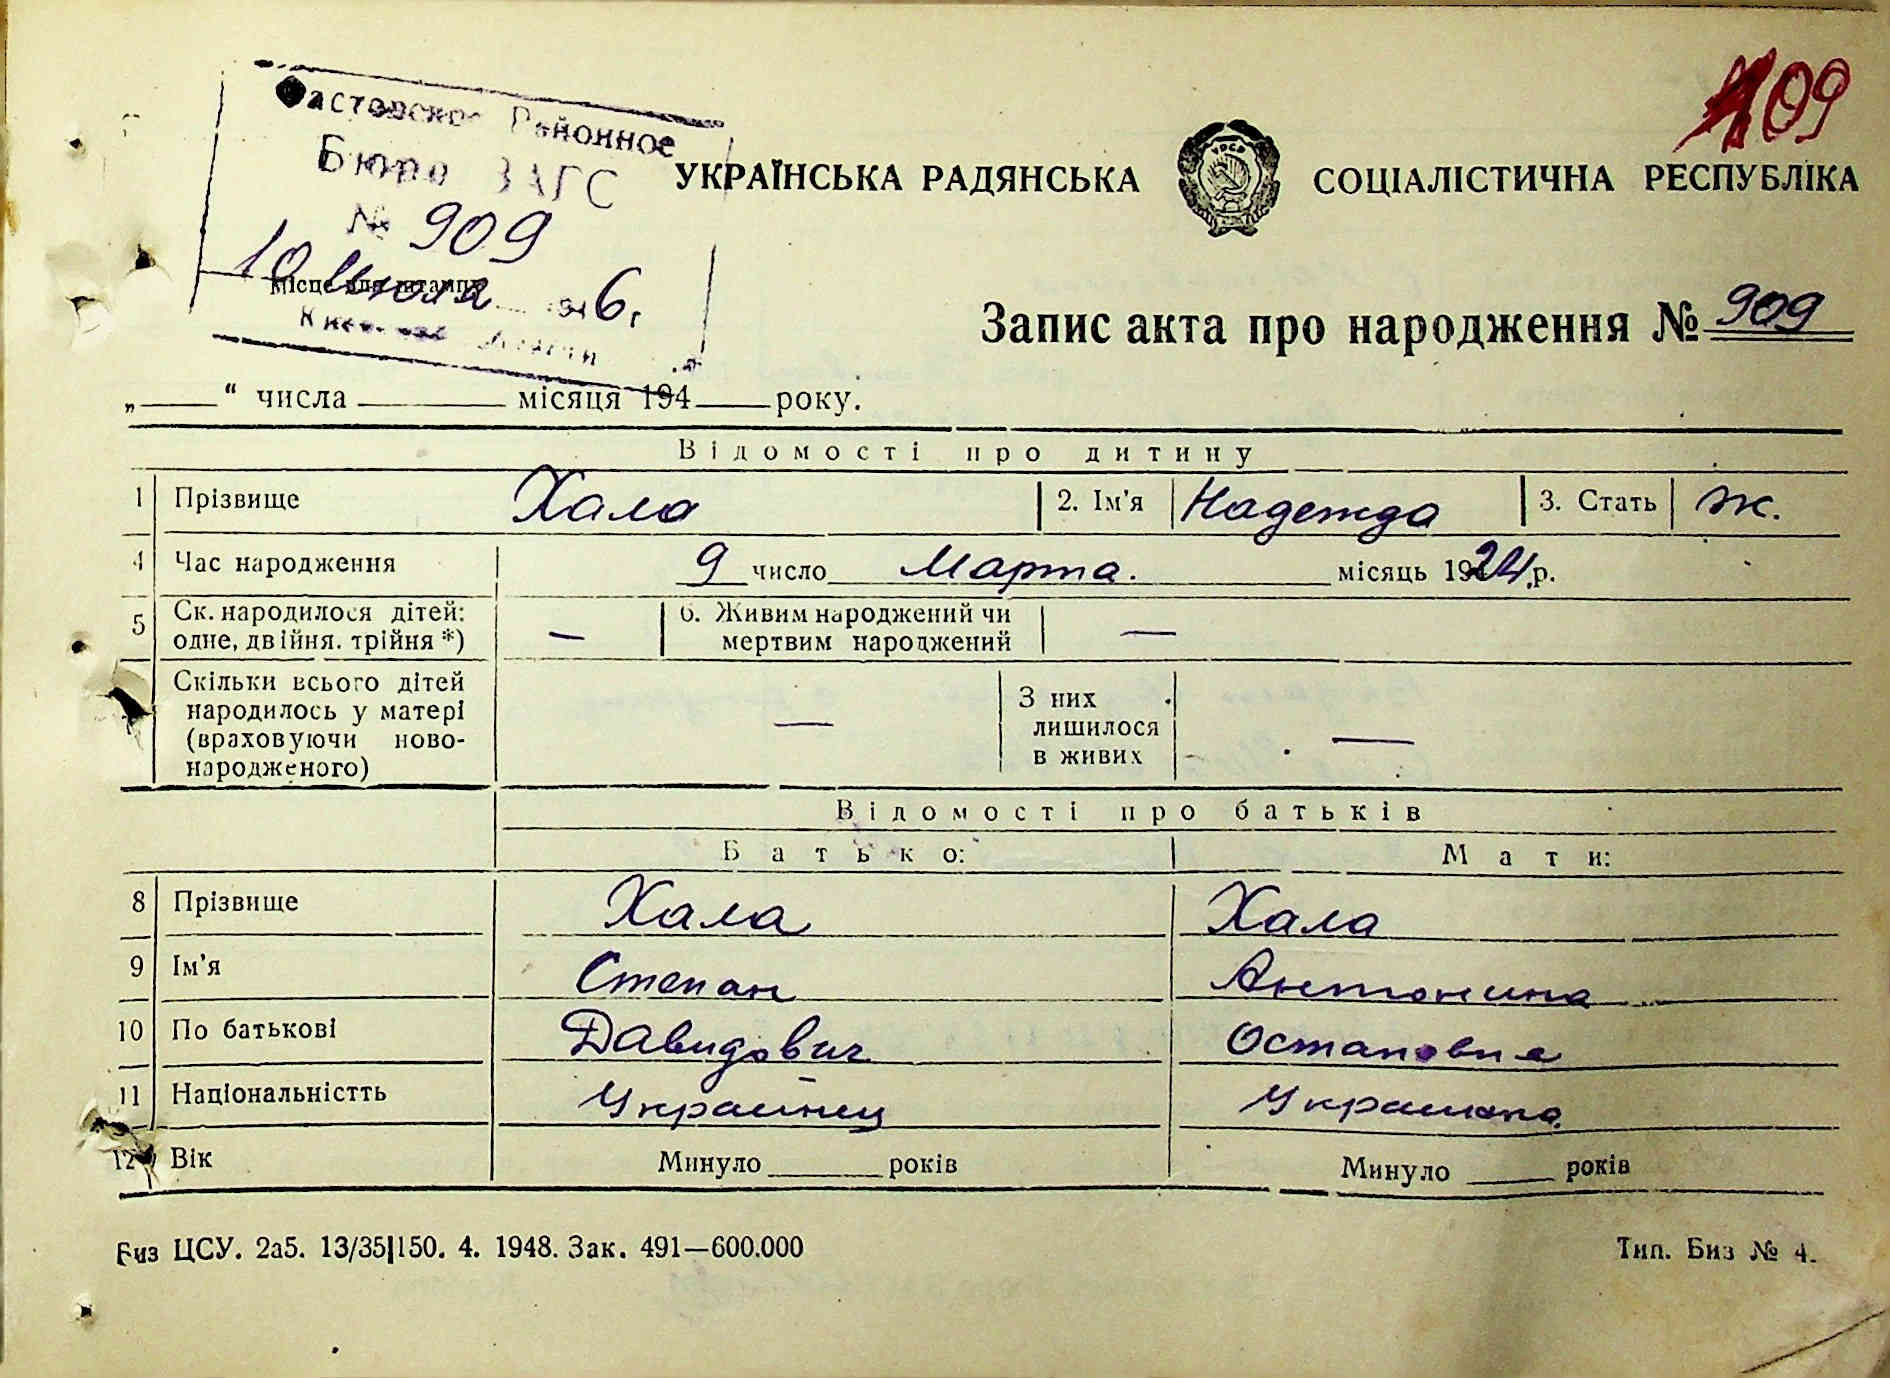 109
Фастовское Районное
Бюро ЗАГС
№ 909
10 Июля 1946 г.
Місце для штампу
Киевской области
УКРАЇНСЬКА РАДЯНСЬКА СОЦІАЛІСТИЧНА РЕСПУБЛІКА
УРСР
Запис акта про народження № 909
„____“ числа ________ місяця 194____ року.
Відомості про дитину
1 Прізвище Хала 2. Ім'я Надежда 3. Стать ж.
4 Час народження 9 число Марта. місяць 1924 р.
5 Ск. народилося дітей: одне, двійня. трійня *) — 6. Живим народжений чи мертвим народжений —
Скільки всього дітей народилось у матері (враховуючи ново-народженого) — З них лишилося в живих —
Відомості про батьків
Батько: Мати:
8 Прізвище Хала Хала
9 Ім'я Степан Антонина
10 По батькові Давидович Остаповна
11 Національністть Украинец Украинка
12 Вік Минуло ____ років Минуло ____ років
Биз ЦСУ. 2а5. 13/35|150. 4. 1948. Зак. 491—600.000 Тип. Биз № 4.